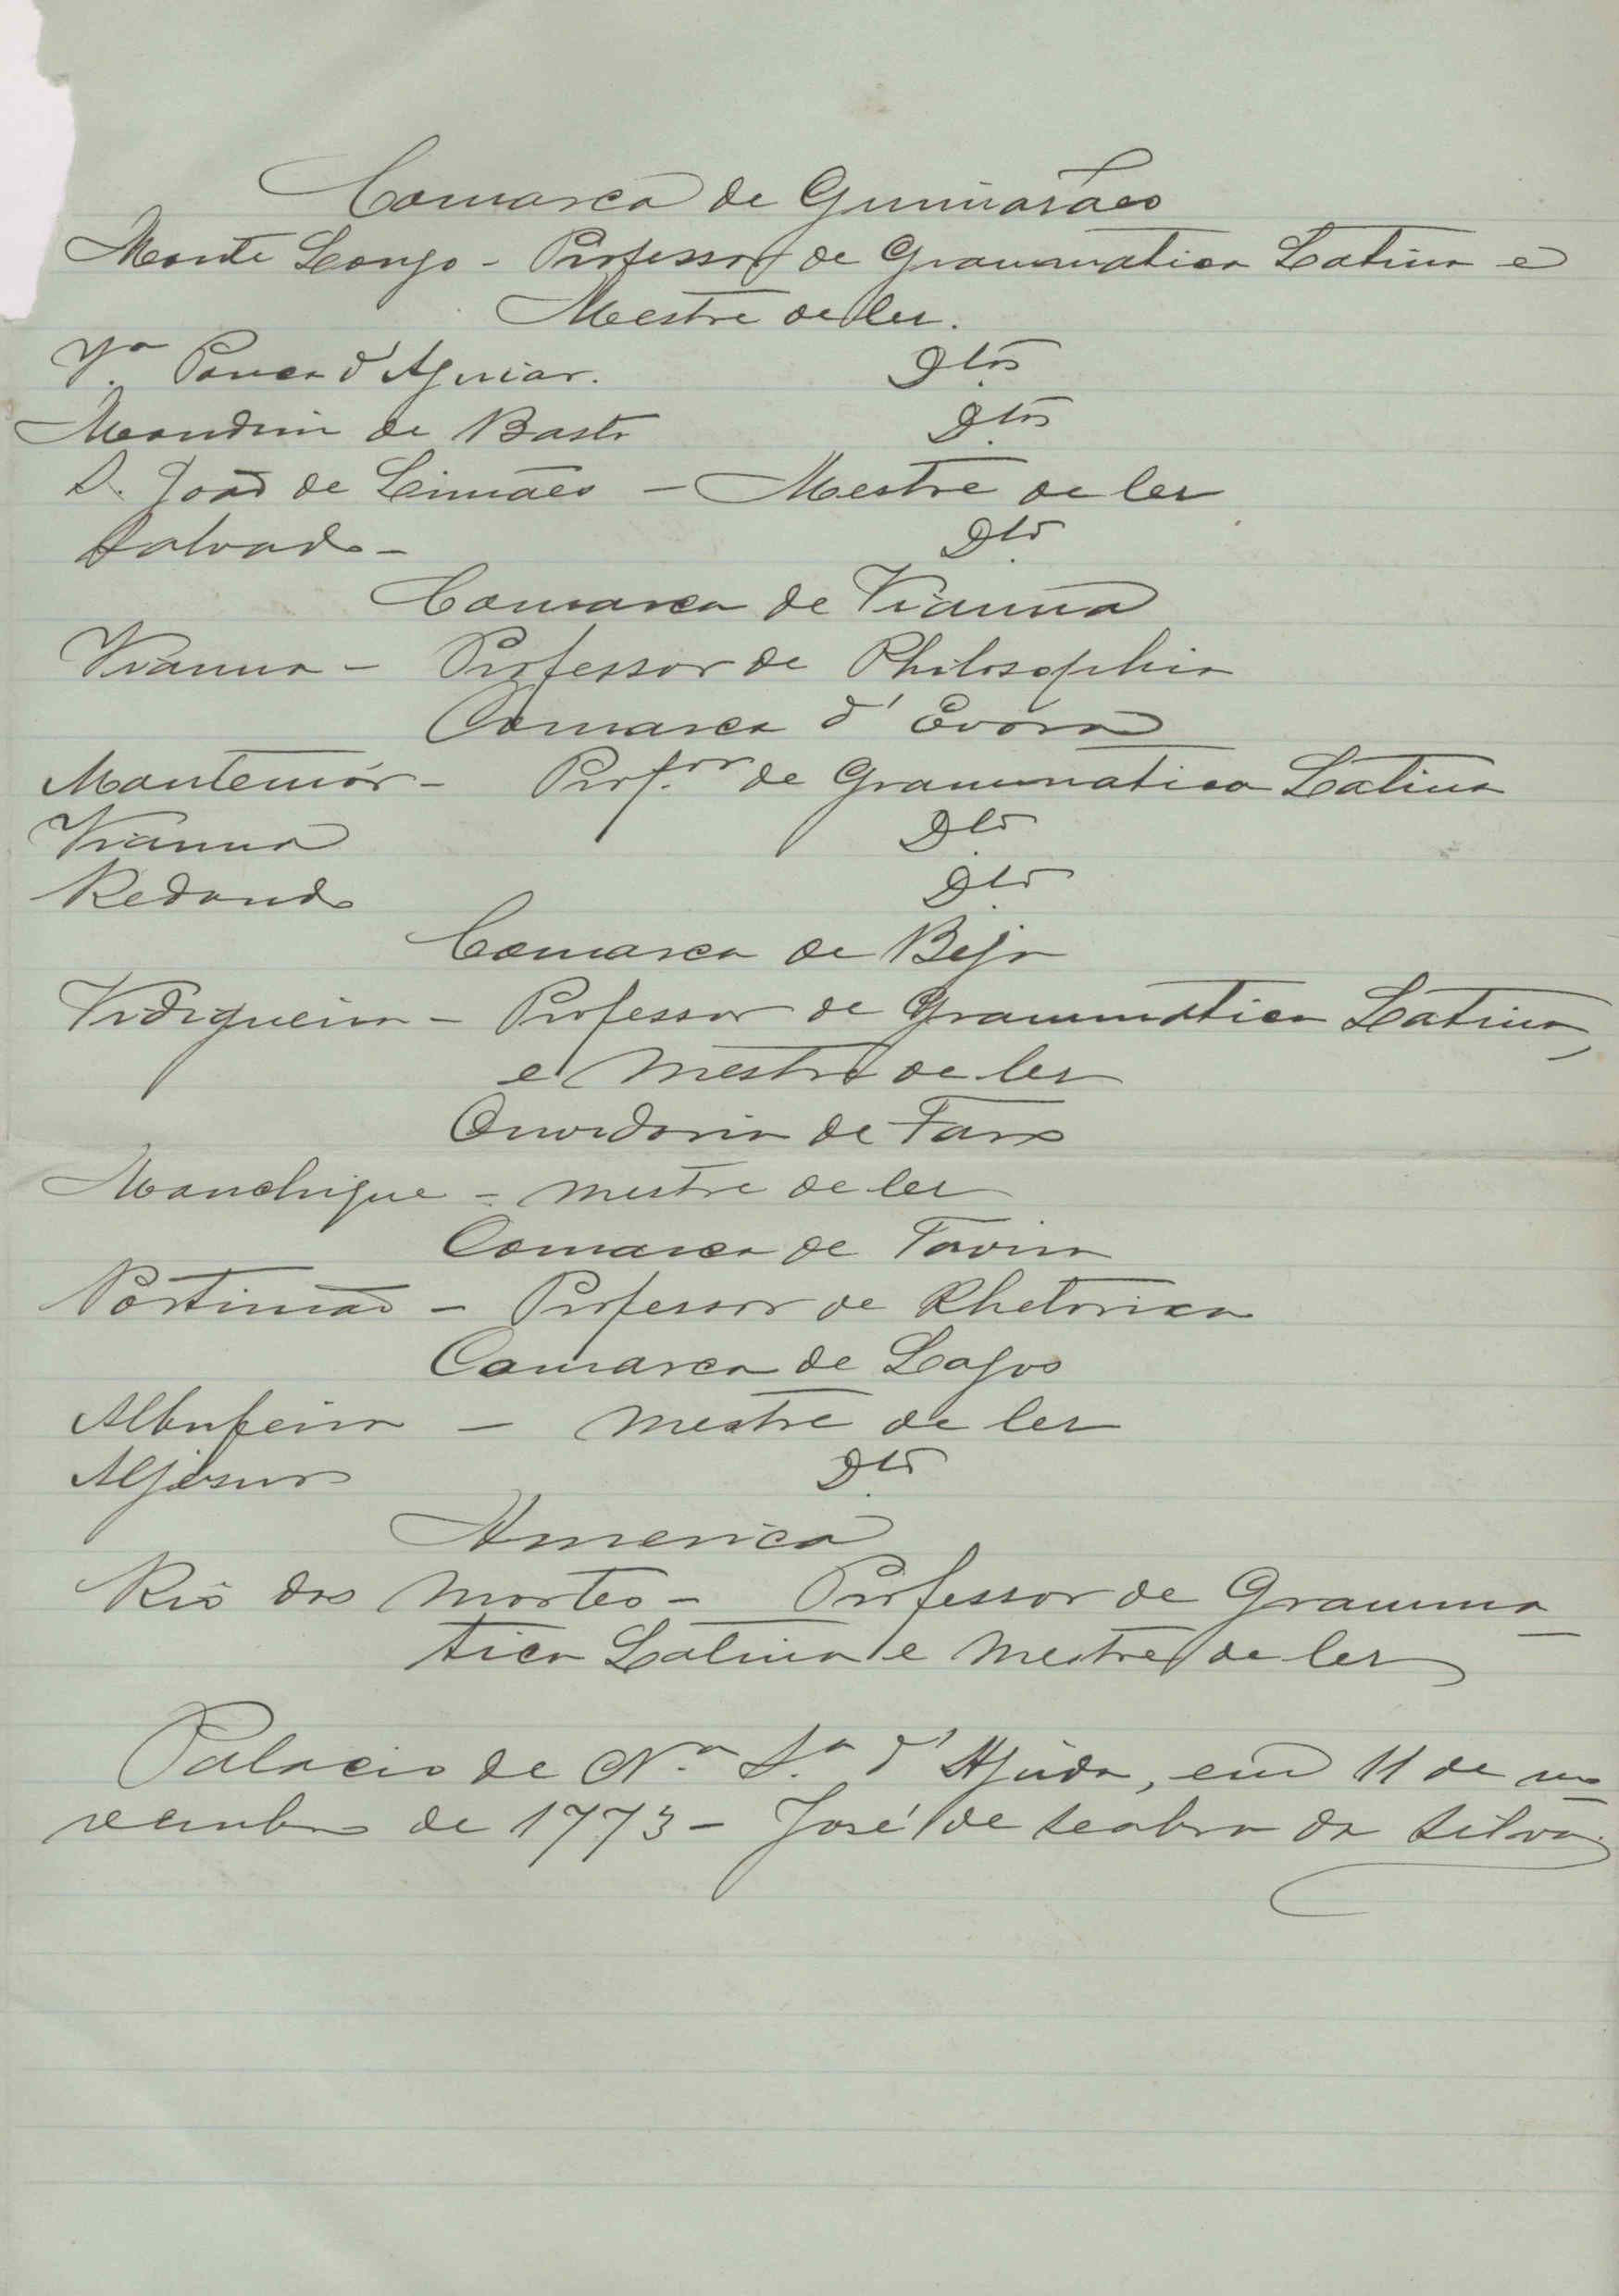 Comarca de Guimarães
Monte Longo - Professor de Grammatica Latina e
Mestre de ler.
Vª Pouca d'Aguiar. Dtos
Mondim de Basto Dtos
S. João de Limães - Mestre de ler
Salvador - Dto
Comarca de Vianna
Vianna - Professor de Philosophia
Comarca d'Evora
Montemór - Prof.or de Grammatica Latina
Vianna Dto
Redondo Dto
Comarca de Beja
Vidigueira - Professor de Grammatica Latina,
e mestre de ler
Ouvidoria de Faro
Monchique - mestre de ler
Comarca de Tavira
Portimão - Professor de Rhetorica
Comarca de Lagos
Albufeira - mestre de ler
Aljesur Dto
America
Rio das Mortes - Professor de Gramma-
tica Latina e mestre de ler
Palacio de N.ª S.ª d'Ajuda, em 11 de no-
vembro de 1773 - José de Seabra da Silva.